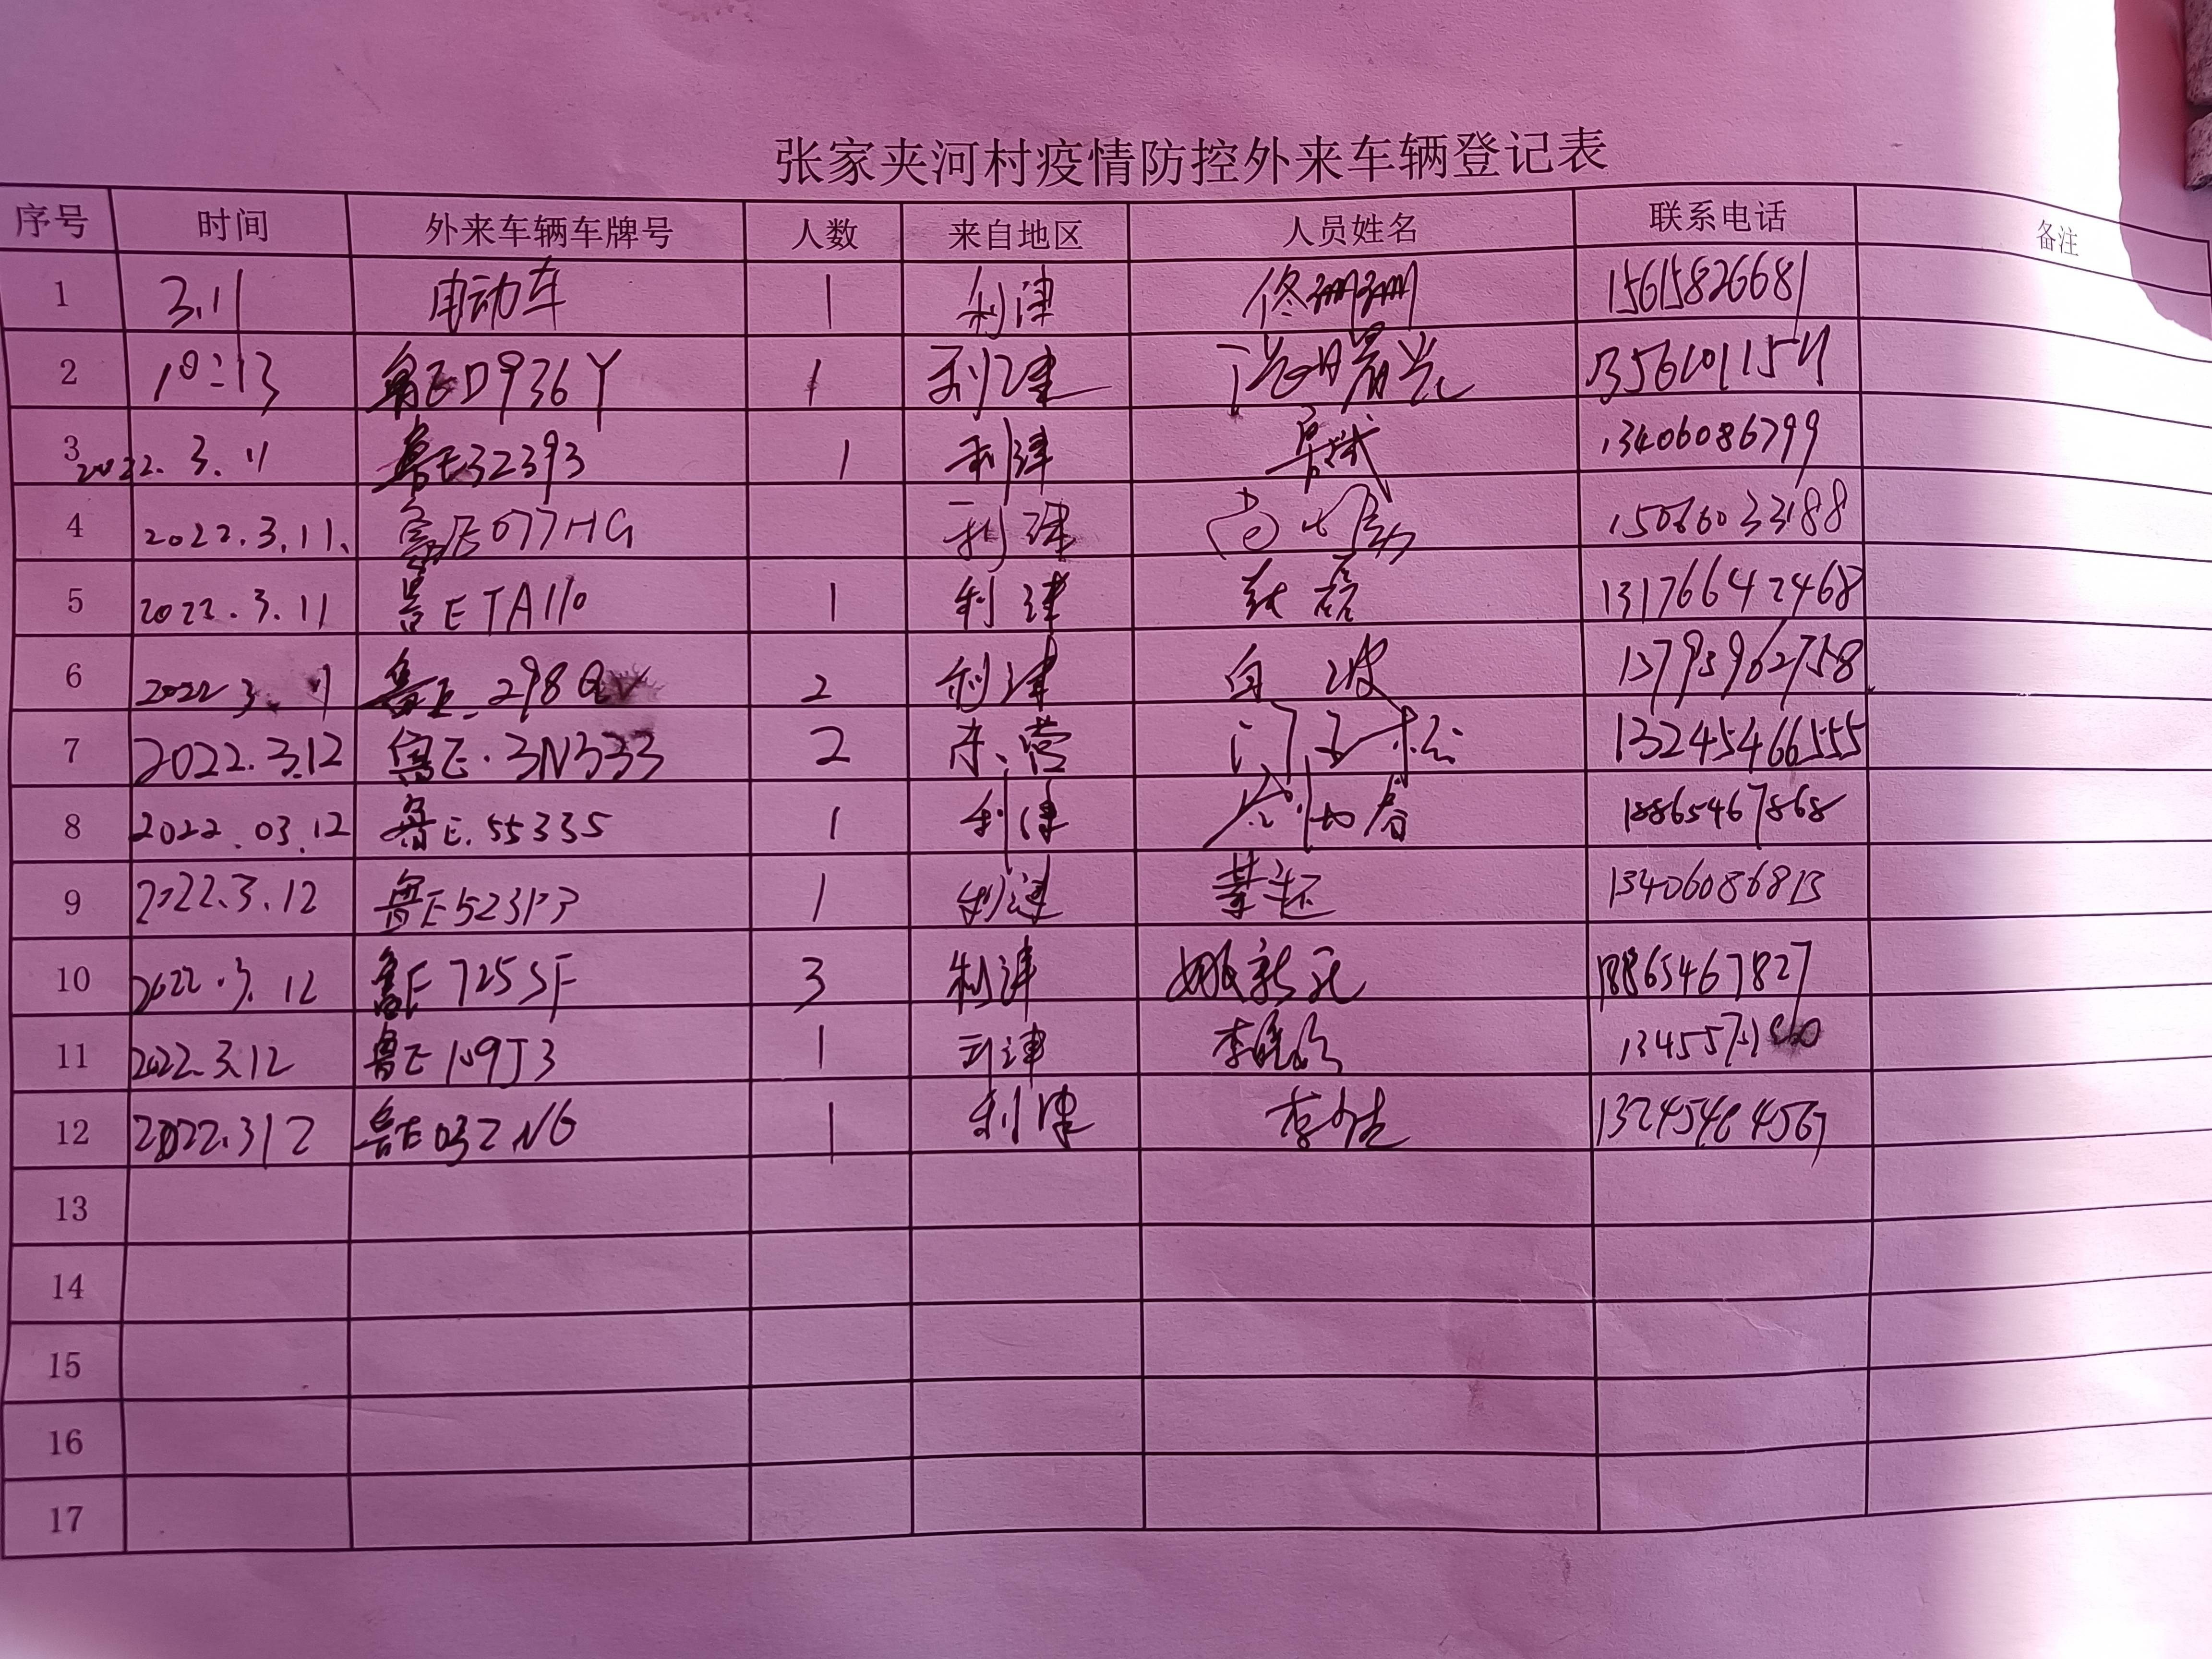 张家夹河村疫情防控外来车辆登记表
序号 时间 外来车辆车牌号 人数 来自地区 人员姓名 联系电话 备注
1 3.11 电动车 1 利津 佟珊珊 15615826681
2 10:13 鲁ED936Y 1 利津
3 2022.3.11 鲁E32393 1 利津 13406086799
4 2022.3.11. 鲁E077HG 利津 15066033188
5 2022.3.11 鲁ETA110 1 利津 13176642468
6 2022 3. 11 鲁E. 298 2 利津 白波
7 2022.3.12 鲁E.3N333 2 东营 13245466555
8 2022.03.12 鲁E.55335 1 利津 18865467868
9 2022.3.12 1 利津 13406086813
10 2022.3.12 鲁E725SF 3 利津 18865467827
11 2022.3.12 鲁E109J3 1 利津
12 2022.312 鲁E032NG 1 利津
13
14
15
16
17